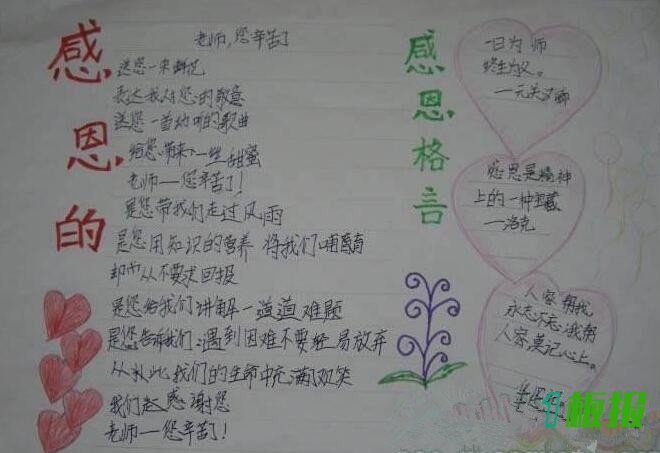 感恩的
老师,您辛苦了
送您一束鲜花
表达我对您的敬意
送您一首动听的歌曲
给您带来一些甜蜜
老师一您辛苦了!
是您带我们走过风雨
是您用知识的营养 将我们哺育
却从不要求回报
是您给我们讲解一道道难题
是您告诉我们:遇到困难不要轻易放弃
从此我们的生命中充满欢笑
我们感谢您
老师一您辛苦了!
感恩格言
一日为师
终生为父。
一元关汉卿
感恩是精神
上的一种宝藏
一洛克
人家帮我
永志不忘;我帮
人家莫记心上。
板报